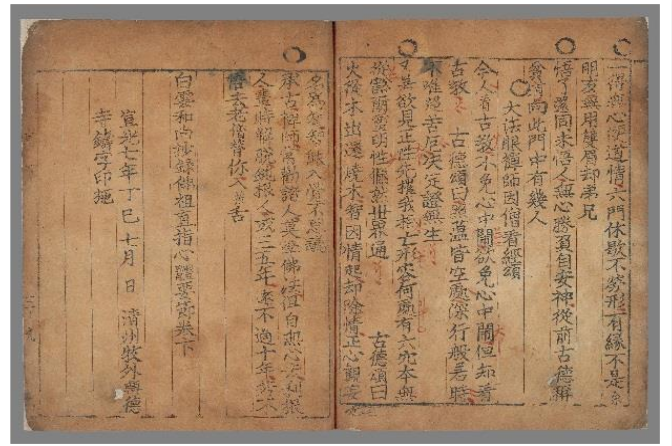 一得無心便道情六門休歇不勞形有緣不是余
朋友無用雙眉却弟兄
悟了還同未悟人無心勝負自安神從前古德稱
貧道向此門中有幾人
大法眼禪師因僧看經頌
今人看古敎不免心中鬧欲免心中鬧但知看
古敎 古德頌曰照蘊皆空處深行般若時
不唯度苦厄決定證無生
欲見正性 我 亡形容何處有六 本無
靈明性 世界通 古德頌曰
火從木出還燒木智因情起却除情正心觀妄
名爲 知 不思議
古禪師常勸諸人莫學佛法但自無心去利根
人晝時解脫鈍根人或三五年遠不過十年若不
悟去老僧替你入拔舌
白雲和尚抄錄佛祖直指心體要節卷下
宣光七年丁巳七月 日 淸州牧外興德
寺鑄字印施